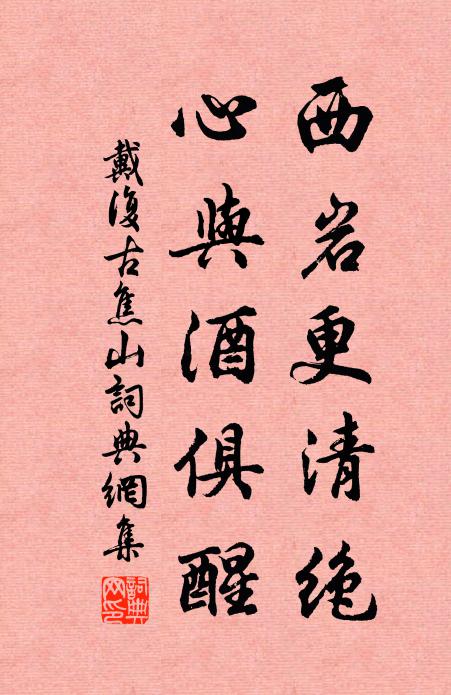 西岩更清絶
心與酒俱醒
戴復古焦山詞典網集
詞典網印